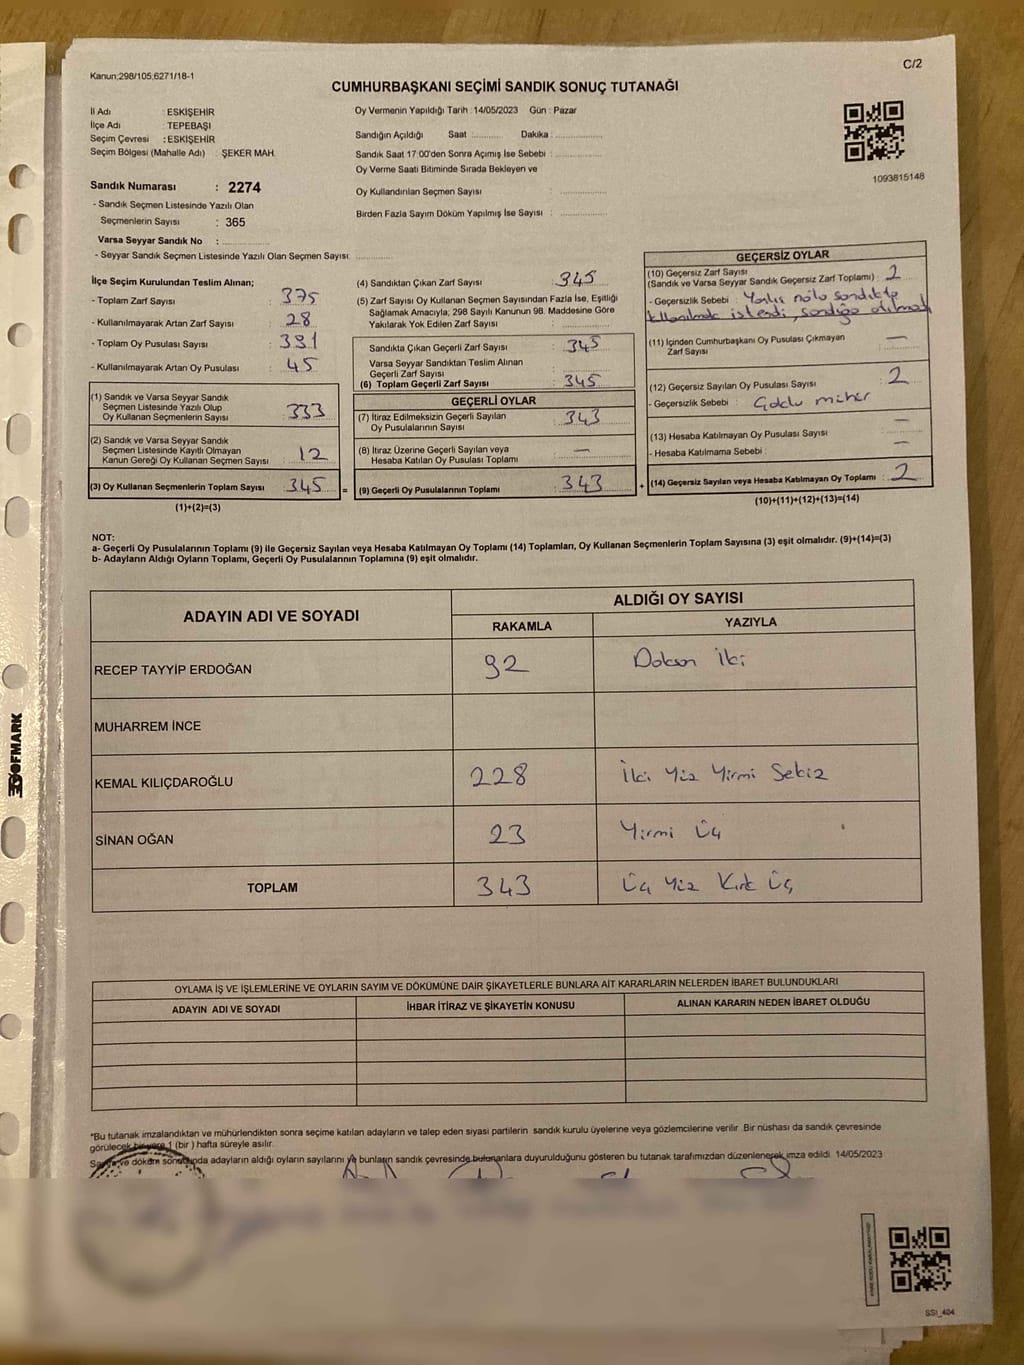 C/2
Kanun;298/105,6271/18-1
CUMHURBAŞKANI SEÇİMİ SANDIK SONUÇ TUTANAĞI
İl Adı : ESKİŞEHİR
İlçe Adı : TEPEBAŞI
Seçim Çevresi : ESKİŞEHİR
Seçim Bölgesi (Mahalle Adı) : ŞEKER MAH.
Sandık Numarası : 2274
- Sandık Seçmen Listesinde Yazılı Olan
Seçmenlerin Sayısı : 365
Varsa Seyyar Sandık No :
- Seyyar Sandık Seçmen Listesinde Yazılı Olan Seçmen Sayısı:
Oy Vermenin Yapıldığı Tarih : 14/05/2023 Gün : Pazar
Sandığın Açıldığı Saat : Dakika :
Sandık Saat 17:00'den Sonra Açımış İse Sebebi :
Oy Verme Saati Bitiminde Sırada Bekleyen ve
Oy Kullandırılan Seçmen Sayısı :
Birden Fazla Sayım Döküm Yapılmış İse Sayısı :
1093815148
İlçe Seçim Kurulundan Teslim Alınan;
- Toplam Zarf Sayısı : 375
- Kullanılmayarak Artan Zarf Sayısı : 28
- Toplam Oy Pusulası Sayısı : 391
- Kullanılmayarak Artan Oy Pusulası : 45
(1) Sandık ve Varsa Seyyar Sandık
Seçmen Listesinde Yazılı Olup
Oy Kullanan Seçmenlerin Sayısı : 333
(2) Sandık ve Varsa Seyyar Sandık
Seçmen Listesinde Kayıtlı Olmayan
Kanun Gereği Oy Kullanan Seçmen Sayısı : 12
(3) Oy Kullanan Seçmenlerin Toplam Sayısı : 345 =
(1)+(2)=(3)
(4) Sandıktan Çıkan Zarf Sayısı : 345
(5) Zarf Sayısı Oy Kullanan Seçmen Sayısından Fazla İse, Eşitliği
Sağlamak Amacıyla; 298 Sayılı Kanunun 98. Maddesine Göre
Yakılarak Yok Edilen Zarf Sayısı :
Sandıkta Çıkan Geçerli Zarf Sayısı : 345
Varsa Seyyar Sandıktan Teslim Alınan
Geçerli Zarf Sayısı :
(6) Toplam Geçerli Zarf Sayısı : 345
GEÇERLİ OYLAR
(7) İtiraz Edilmeksizin Geçerli Sayılan
Oy Pusulalarının Sayısı : 343
(8) İtiraz Üzerine Geçerli Sayılan veya
Hesaba Katılan Oy Pusulası Toplamı : —
(9) Geçerli Oy Pusulalarının Toplamı : 343 +
GEÇERSİZ OYLAR
(10) Geçersiz Zarf Sayısı
(Sandık ve Varsa Seyyar Sandık Geçersiz Zarf Toplamı) : 2
- Geçersizlik Sebebi : Yanlış nolu sandıkta
kullanılmak istendi, sandığa atılmadı
(11) İçinden Cumhurbaşkanı Oy Pusulası Çıkmayan
Zarf Sayısı : —
(12) Geçersiz Sayılan Oy Pusulası Sayısı : 2
- Geçersizlik Sebebi : Çoklu mühür
(13) Hesaba Katılmayan Oy Pusulası Sayısı : —
- Hesaba Katılmama Sebebi : —
(14) Geçersiz Sayılan veya Hesaba Katılmayan Oy Toplamı : 2
(10)+(11)+(12)+(13)=(14)
NOT:
a- Geçerli Oy Pusulalarının Toplamı (9) ile Geçersiz Sayılan veya Hesaba Katılmayan Oy Toplamı (14) Toplamları, Oy Kullanan Seçmenlerin Toplam Sayısına (3) eşit olmalıdır. (9)+(14)=(3)
b- Adayların Aldığı Oyların Toplamı, Geçerli Oy Pusulalarının Toplamına (9) eşit olmalıdır.
ADAYIN ADI VE SOYADI ALDIĞI OY SAYISI
RAKAMLA YAZIYLA
RECEP TAYYİP ERDOĞAN 92 Doksan İki
MUHARREM İNCE
KEMAL KILIÇDAROĞLU 228 İki Yüz Yirmi Sekiz
SİNAN OĞAN 23 Yirmi Üç
TOPLAM 343 Üç Yüz Kırk Üç
OYLAMA İŞ VE İŞLEMLERİNE VE OYLARIN SAYIM VE DÖKÜMÜNE DAİR ŞİKAYETLERLE BUNLARA AİT KARARLARIN NELERDEN İBARET BULUNDUKLARI
ADAYIN ADI VE SOYADI İHBAR İTİRAZ VE ŞİKAYETİN KONUSU ALINAN KARARIN NEDEN İBARET OLDUĞU
*Bu tutanak imzalandıktan ve mühürlendikten sonra seçime katılan adayların ve talep eden siyasi partilerin sandık kurulu üyelerine veya gözlemcilerine verilir. Bir nüshası da sandık çevresinde
görülecek bir yere 1 (bir ) hafta süreyle asılır.
Sayım ve döküm sonucunda adayların aldığı oyların sayılarını ve bunların sandık çevresinde bulunanlara duyurulduğunu gösteren bu tutanak tarafımızdan düzenlenerek imza edildi. 14/05/2023
SSI_404
OFMARK